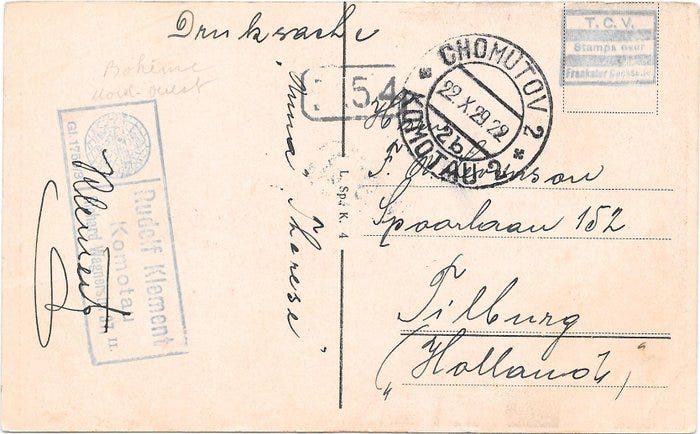 Drucksache
T.C.V.
Stamps over
Bohême
nord-ouest
* CHOMUTOV 2 *
22.X.29.22
2b
KOMOTAU 2
54
L. Sp. K. 4
„Anna Therese"
F.
Spoorlaan 152
Tilburg
(Holland)
Rudolf Klement
Komotau
II.
Klement